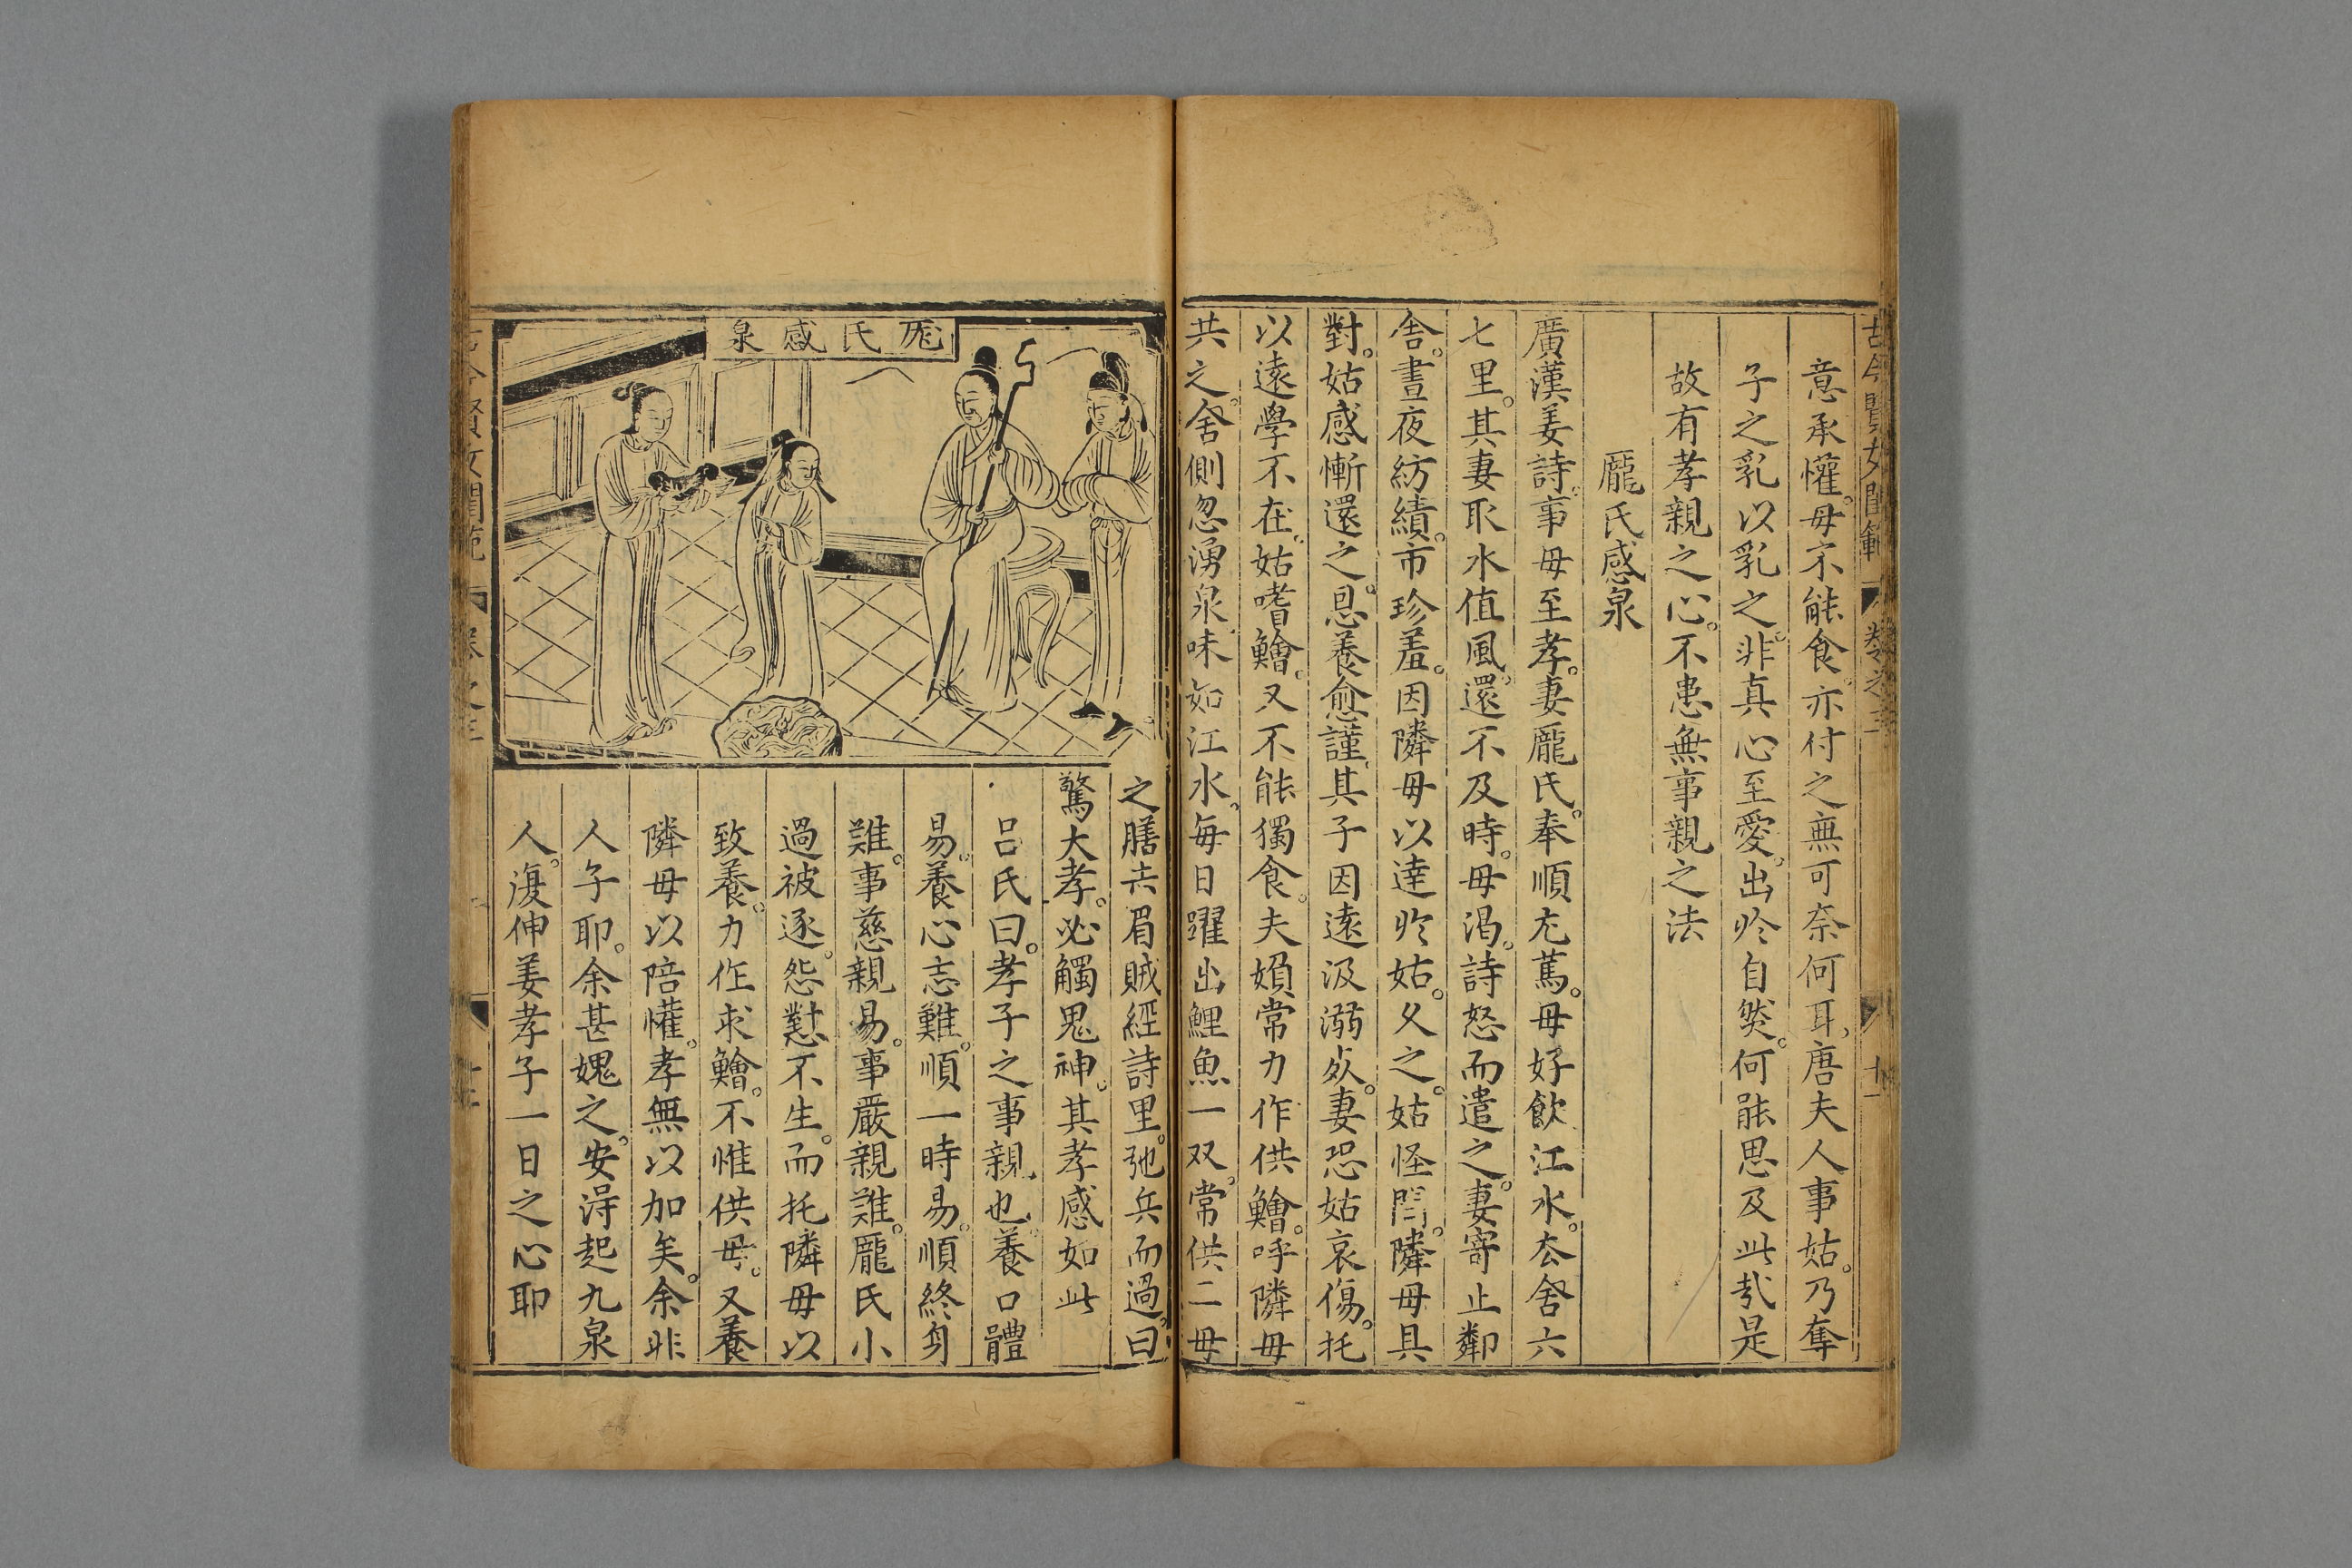 古今賢女閨範 卷之三 十一
意承懽。母不能食。亦付之無可奈何耳。唐夫人事姑。乃奪
子之乳以乳之。非真心至愛。出於自然。何能思及此哉是
故有孝親之心。不患無事親之法
龎氏感泉
廣漢姜詩。事母至孝。妻龎氏。奉順尤篤。母好飲江水。去舍六
七里。其妻取水值風。還不及時。母渴。詩怒而遣之。妻寄止鄰
舍。晝夜紡績。市珍羞。因隣母以達於姑。久之。姑怪問。隣母具
對。姑感慚還之。恩養愈謹。其子因遠汲溺死。妻恐姑哀傷。托
以遠學不在。姑嗜鱠。又不能獨食。夫婦常力作供鱠。呼隣母
共之。舍側忽湧泉。味如江水。每日躍出鯉魚一双。常供二母
龎氏感泉
之膳。赤眉賊經詩里。弛兵而過。曰
驚大孝。必觸鬼神。其孝感如此
呂氏曰。孝子之事親也。養口體
易。養心志難。順一時易。順終身
難。事慈親易。事嚴親難。龎氏小
過被逐。怨懟不生。而托隣母以
致養。力作求鱠。不惟供母。又養
隣母以陪懽。孝無以加矣。余非
人子耶。余甚媿之。安得起九泉
人。復伸姜孝子一日之心耶